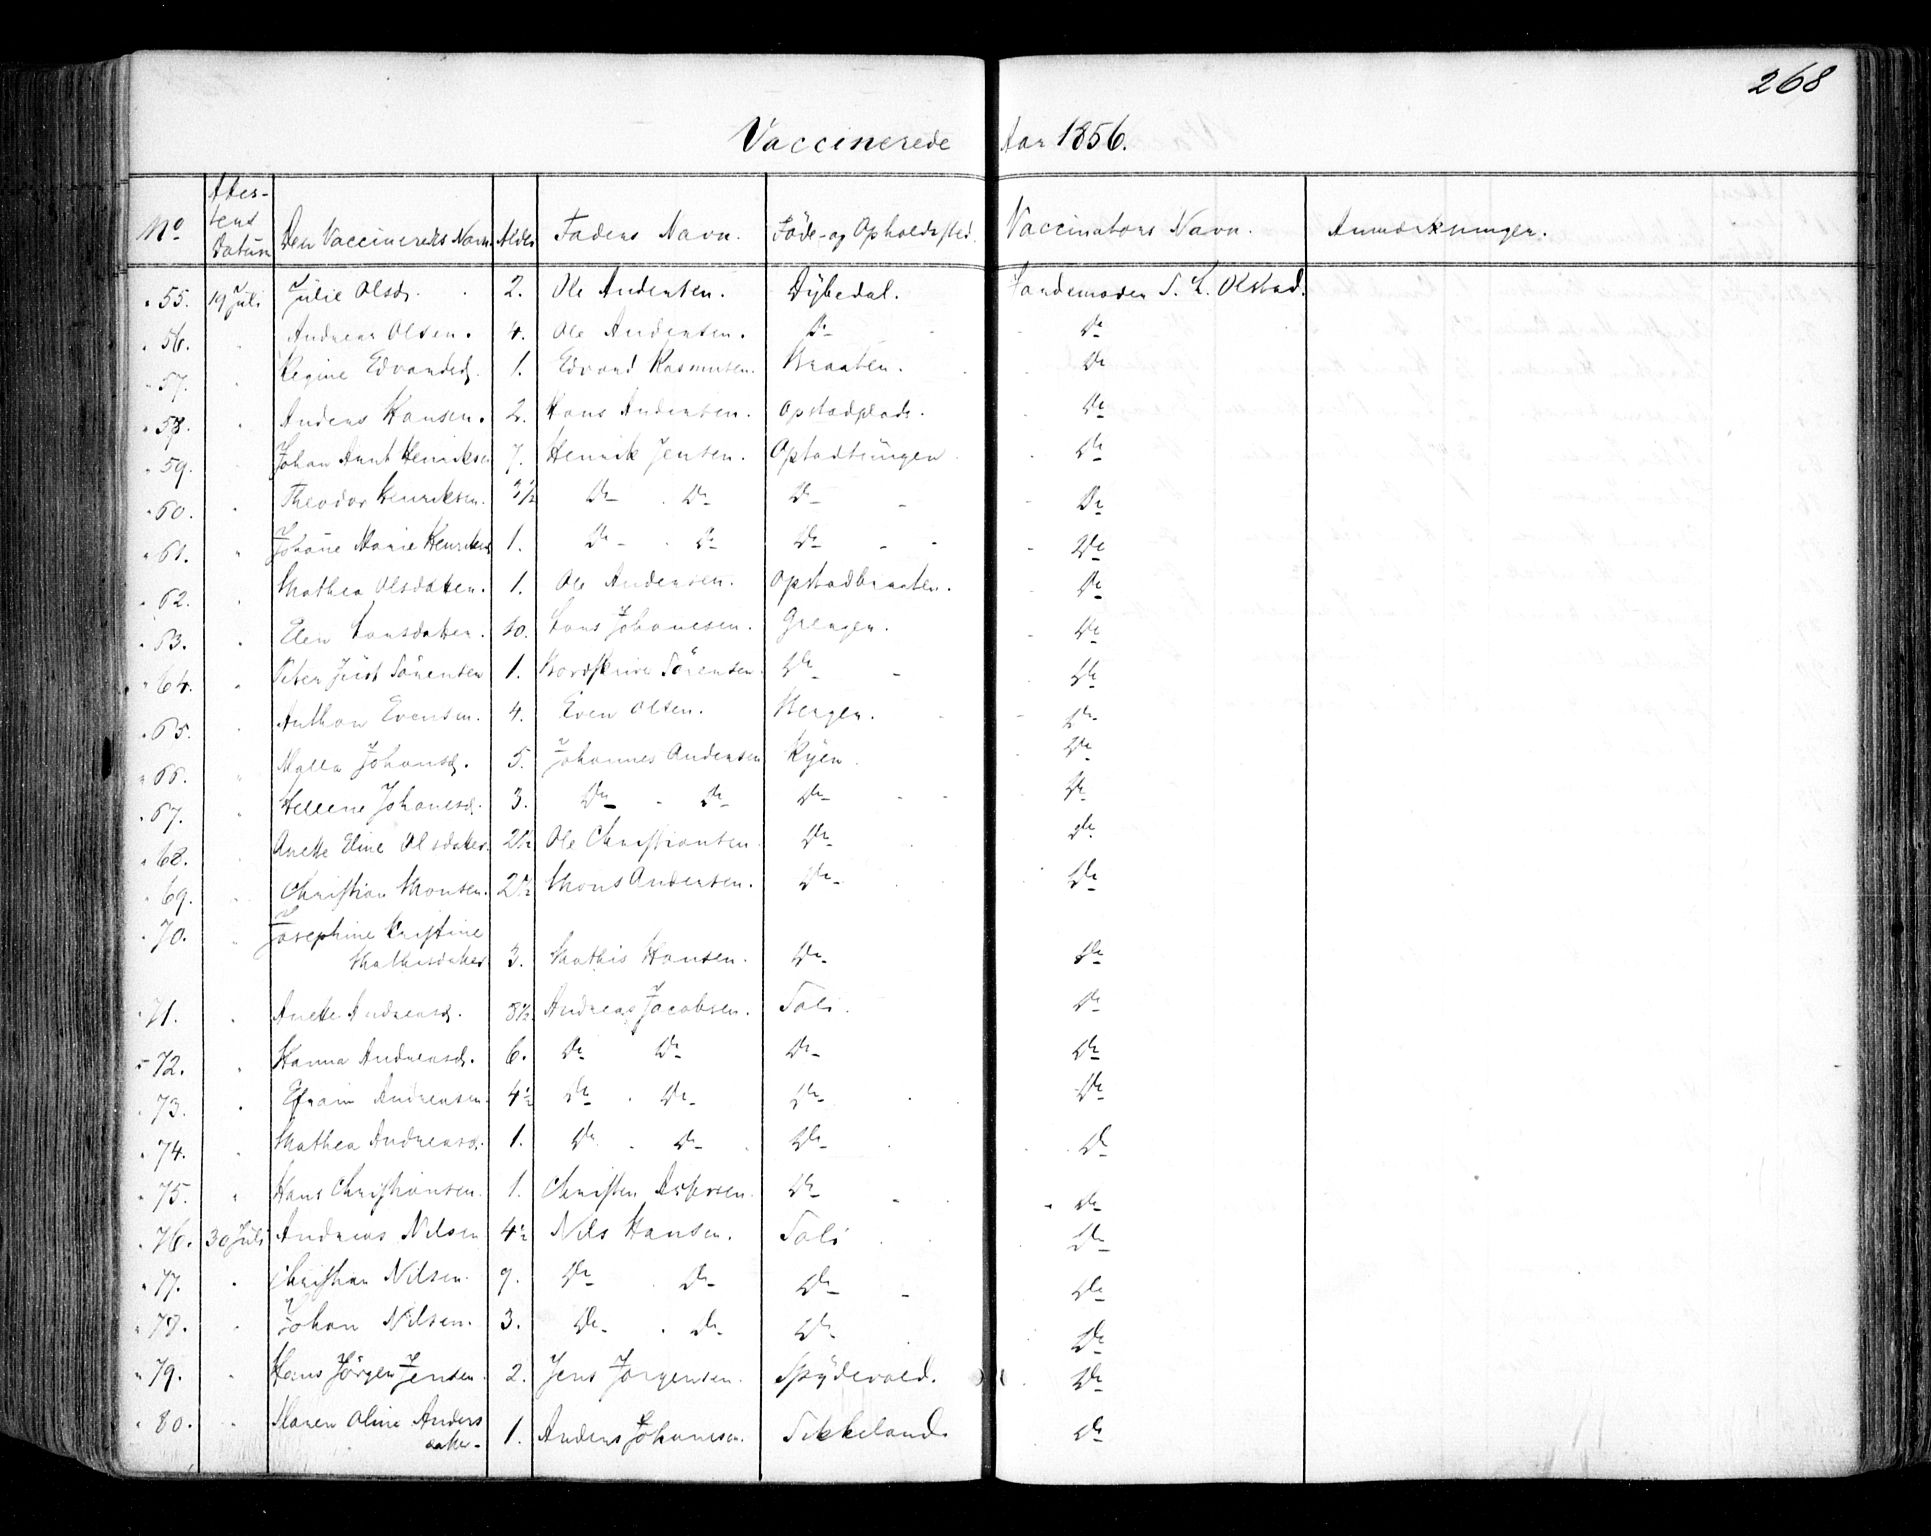 268
Vaccinerede Aar 1856.
No Attestens Datum Den Vaccineredes Navn Alder Faders Navn. Føde- og Opholdssted. Vaccinators Navn. Anmærkninger.
" 55. 19 Juli Julie Olsd. 2. Ole Andersen. Dybedal. Jordemoder S. L. Olstad.
" 56. " Andreas Olsen. 4. Ole Andersen. Do Do
" 57. " Regine Edvardsd. 1. Edvard Rasmusen. Braaten. Do
" 58. " Anders Hansen. 2. Hans Andersen. Opstadplads. Do
" 59. " Johan Arnt Henriksen 7. Henrik Jensen. Opstadtungen Do
" 60. " Theodor Henriksen. 3½ Do Do Do Do
" 61. " Johane Marie Henriksd 1. Do Do Do Do
" 62. " Mathea Olsdatter. 1. Ole Andersen. Opstadbraaten. Do
" 63. " Elen Larsdatter. 10. Lars Johanesen. Grengen. Do
" 64. " Peter Just Sörensen 1. Sörensen Do Do
" 65. " Anthon Evensen. 4. Even Olsen. Bergen. Do
" 66. " Malla Johansd. 5. Johannes Andersen Ryen Do
" 67. " Helene Johanesd. 3. Do Do Do Do
" 68. Anette Eline Olsdatter. 2½ Ole Christiansen Do Do
" 69. " Christian Monsen. 2½ Mons Andersen. Do Do
" 70. " Josephine Kristine
Mathisdatter 3. Mathis Hansen. Do Do
" 71. " Anette Andreasd. 8½ Andreas Jacobsen. Soli. Do
" 72. " Hanna Andreasd. 6. Do Do Do Do
" 73. " Efraim Andreasen. 4½ Do Do Do Do
" 74. " Mathea Andreasd. 1. Do Do Do Do
" 75. " Hans Christiansen. 1. Christen Do Do
" 76. 30 Juli Andreas Nilsen 4½ Nils Hansen. Soli Do
" 77. " Christian Nilsen. 9. Do Do Do Do
" 78. " Johan Nilsen. 3. Do Do Do Do
" 79. " Hans Jörgen Jensen. 2. Jens Jörgensen. Spydevold. Do
" 80. " Maren Oline Anders
datter 1. Anders Johanesen. Sikkeland. Do